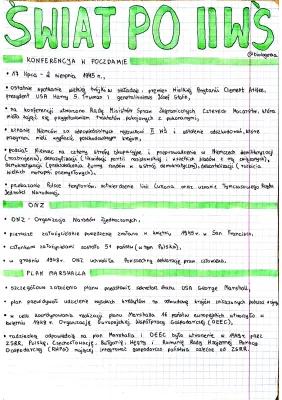 ŚWIAT PO II WŚ
@biologerka
KONFERENCJA W POCZDAMIE
• 17 lipca - 2 sierpnia 1945 r.,
• ostatnie spotkanie wielkiej trójki w składzie: premier Wielkiej Brytanii Clement Attlee,
prezydent USA Harry S. Truman i generalissimus Józef Stalin,
• na konferencji utworzono Radę Ministrów Spraw Zagranicznych Czterech Mocarstw, która
miała zająć się przygotowaniem traktatów pokojowych z pokonanymi,
• uznanie Niemiec za odpowiedzialne wybuchowi II WŚ i ustalono odszkodowania, które
• podział Niemiec na cztery strefy okupacyjne i przeprowadzenie w Niemczech demilitaryzacji
(rozbrojenia), denazyfikacji (likwidacji partii nazistowskiej i wszelkich śladów z nią związanych),
demokratyzacji (przekształcenia życia narodów w ustrój demokratyczny), dekartelizacji (rozbicia
wielkich koncernów przemysłowych),
• przekazanie Polsce terytoriów, zatwierdzenie linii Curzona oraz uznanie Tymczasowego Rządu
Jedności Narodowej.
ONZ
• ONZ - Organizacja Narodów Zjednoczonych,
• pierwsze założycielskie posiedzenie zwołano w kwietniu 1945 r. w San Francisco,
• członkami założycielskimi zostało 51 państw (w tym Polska),
• w grudniu 1948 r. ONZ uchwaliła Powszechną deklarację praw człowieka.
PLAN MARSHALLA
• szczegółowe założenia planu przedstawił sekretarz stanu USA George Marshall,
• plan przewidywał udzielenie wysokich kredytów na odbudowę krajów zniszczonych podczas wojny,
• w celu koordynowania realizacji planu Marshalla 16 państw europejskich utworzyło w
kwietniu 1948 r. Organizację Europejskiej Współpracy Gospodarczej (OEEC),
• radziecką odpowiedzią na plan Marshalla i OEEC było utworzenie w 1949 r. przez
ZSRR, Polskę, Czechosłowację, Bułgarię, Węgry i Rumunię Rady Wzajemnej Pomocy
Gospodarczej (RWPG) mającej integrować gospodarczo państwa zależne od ZSRR.